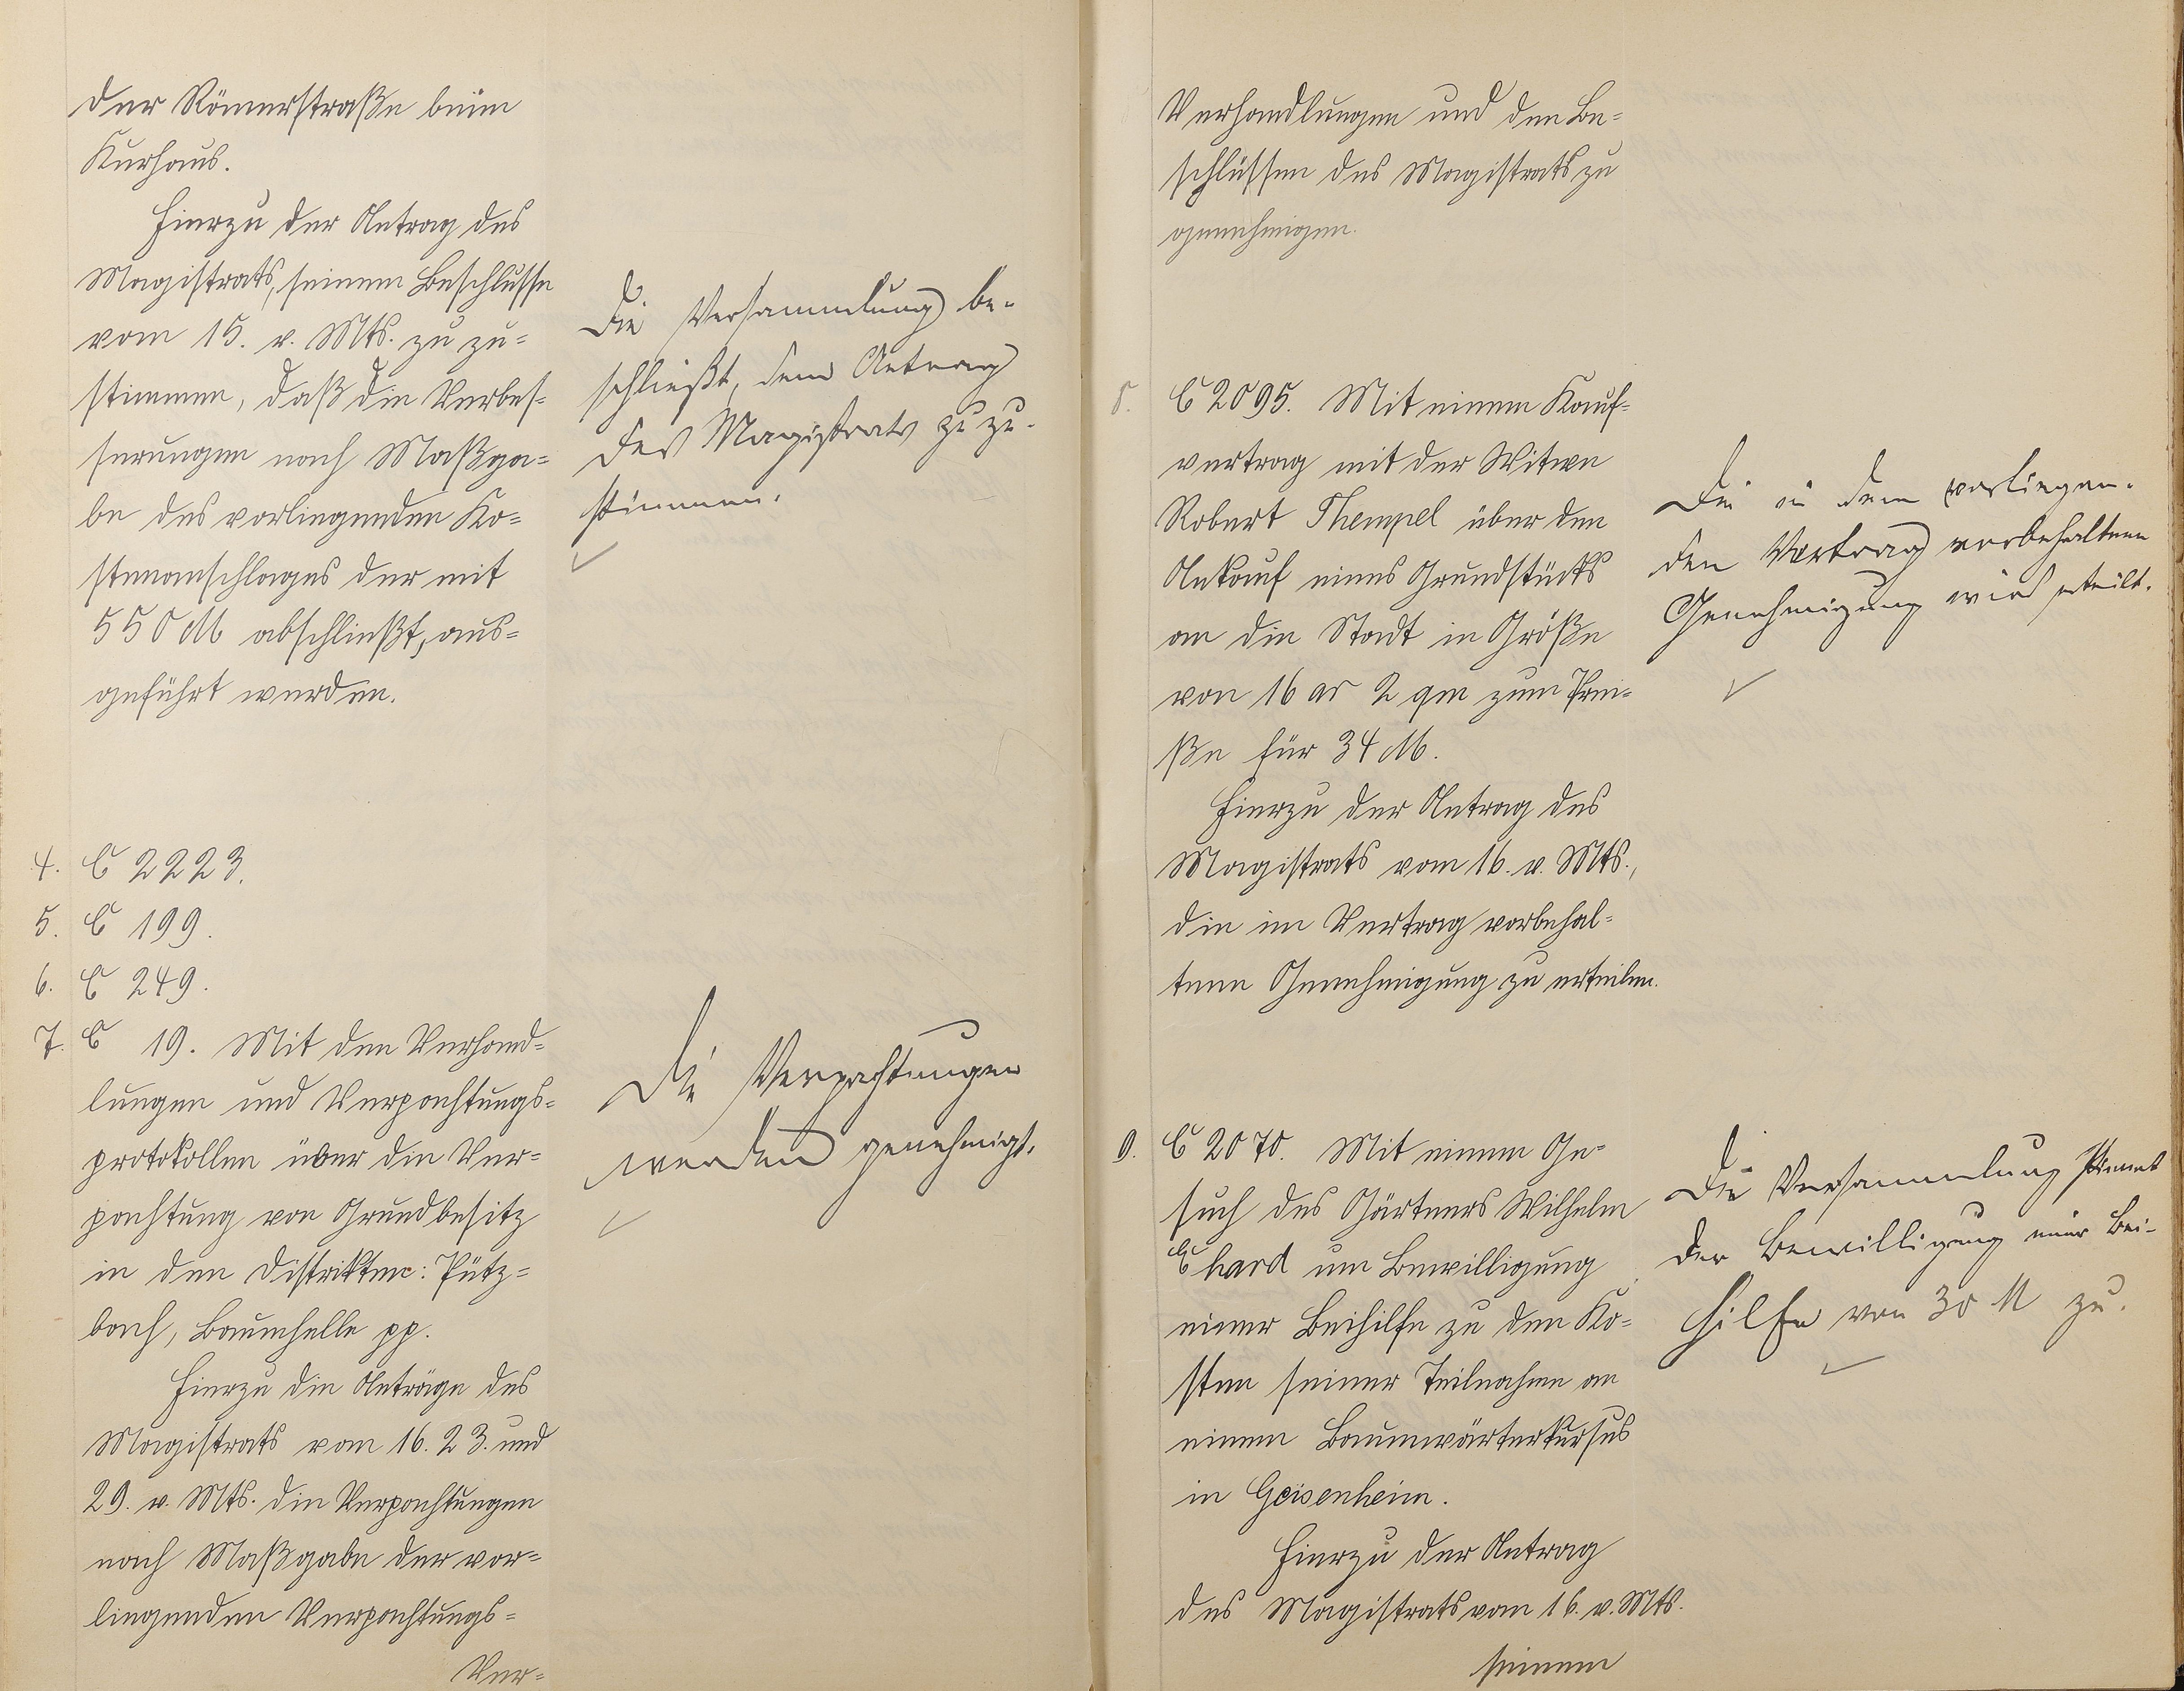 der Römerstraße beim
Kurhaus.
Hierzu der Antrag des
Magistrats, seinem Beschlusse
vom 15. v. Mts. zu zu=
stimmen, daß die Verbes=
serungen nach Maßga=
be des vorliegenden Ko=
stenanschlages der mit
550 M abschließt, aus=
geführt werden.
Die Versammlung be-
schließt, dem Antrag
des Magistrats zu zu-
stimmen.
4. C 2223.
5. C 199.
6. C 249.
7. C 19. Mit den Verhand=
lungen und Verpachtungs=
protokollen über die Ver=
pachtung von Grundbesitz
in den Distrikten: Pütz=
bach, Baumhelle pp.
Hierzu die Anträge des
Magistrats vom 16. 23. und
29. v. Mts. die Verpachtungen
nach Maßgabe der vor=
liegenden Verpachtungs=
Ver=
Die Verpachtungen
werden genehmigt.
Verhandlungen und den Be=
schlüssen des Magistrats zu
genehmigen.
8. C 2095. Mit einem Kauf=
vertrag mit der Witwe
Robert Thempel über den
Ankauf eines Grundstücks
an die Stadt in Größe
von 16 ar 2 qm zum Prei=
ße für 34 M.
Hierzu der Antrag des
Magistrats vom 16. v. Mts.,
die im Vertrag vorbehal=
tene Genehmigung zu erteilen.
Die in dem vorliegen-
den Vertrag vorbehaltene
Genehmigung wird erteilt.
9. C 2070. Mit einem Ge=
such des Gärtners Wilhelm
Ehard um Bewilligung
einer Beihilfe zu den Ko=
sten seiner Teilnahme an
einem Baumwärterkursus
in Geisenheim.
Hierzu der Antrag
des Magistrats vom 16. v. Mts.
seinem
Die Versammlung stimmt
der Bewilligung einer Bei-
hilfe von 30 M zu.